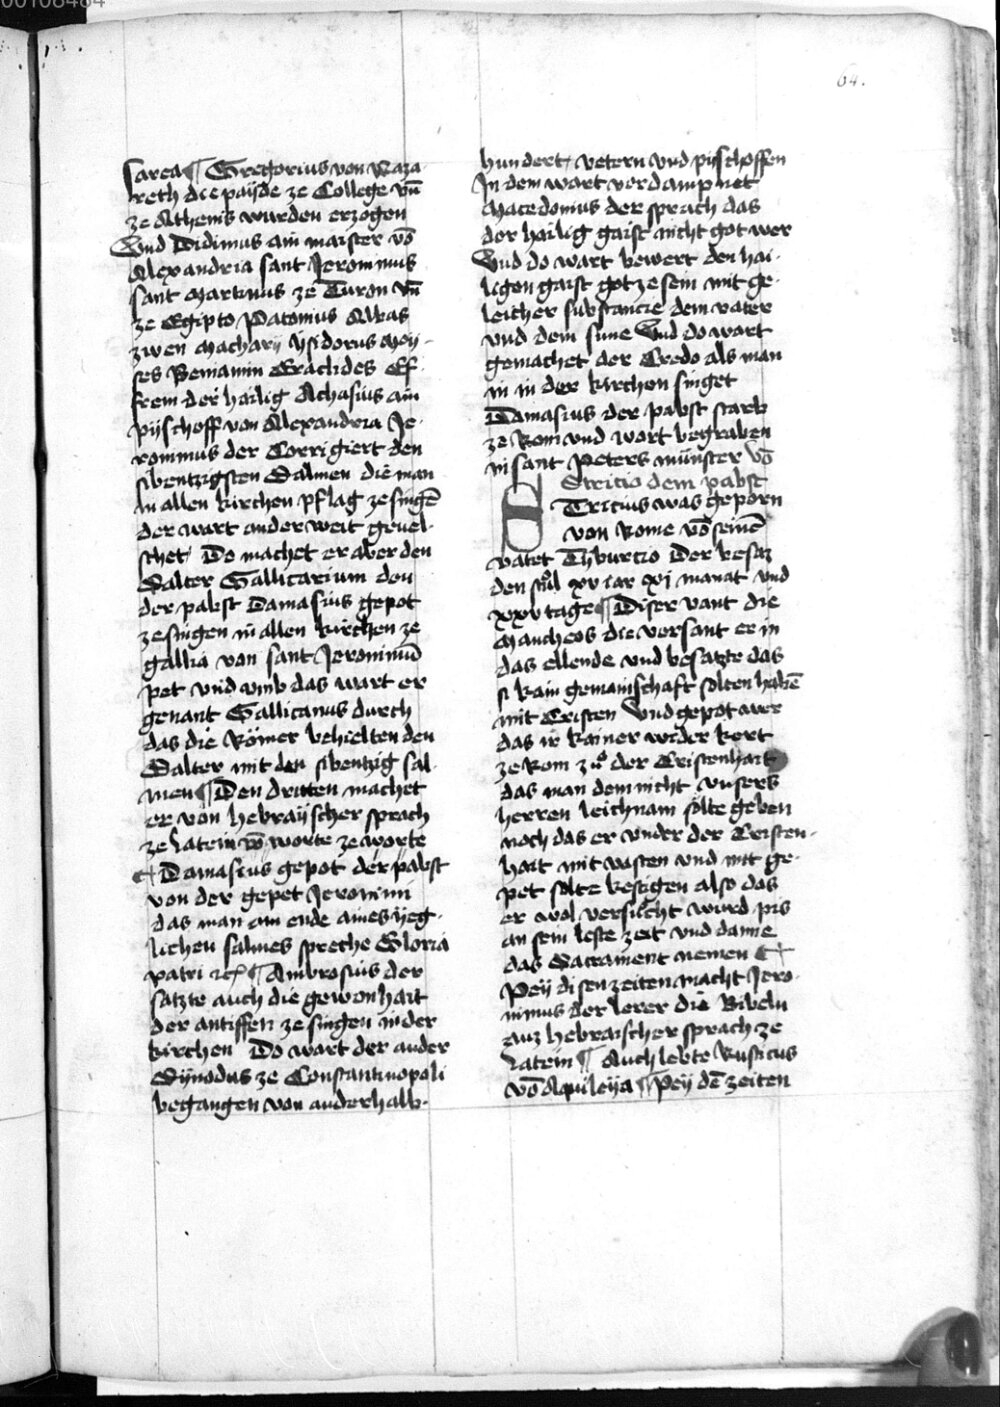 00108484
64.
sarea ¶ Gregorius von Naza-
reth die payde ze College vn̄
ze Athenis wurden erzogen
Vnd Didimus ain maister vō
Alexandria sant Jeronimus
sant Martinus ze Turon vn̄
ze Egipto Patomius Abas
zwen Macharij ysidorus Moy-
ses Beniamin Eraclides Ef-
frem der hailig Athasius ain
pyschoff von Alexandria Je-
ronimus der Corrigiert den
sibentzigsten Salmen die man
In allen kirchen pflag ze singē
der wart anderweit gevel-
schet Do machet er aber den
Salter Gallicarium den
der pabst Damasius gepot
ze singen in allen kirchen ze
gallia von sant Jeronimū
pet vnd vmb das wart er
genant Gallicanus durch
das die Römer behielten den
Salter mit den sibentzig sal-
men ¶ Den dritten machet
er von hebrayscher sprach
ze latein vō worte ze worte
¶ Damasius gepot der pabst
von der gepet Jeronimi
das man am ende aines yeg-
lichen salmes spreche Gloria
patri ꝛc ¶ Ambrosius der
satzte auch die gewonhait
der antiffen ze singen in der
kirchen Do wart der ander
Synodus ze Constantinopoli
begangen von anderhalb-
hundert vetern vnd pyschoffen
In dem wart verdampnet
Macedonius der sprach das
der hailig gaist nicht got wer
Vnd do wart bewert den hai-
ligen gaist got ze sein mit ge-
leicher substancie dem vater
vnd dem sune Vnd do wart
gemachet der Credo als man
in in der kirchen singet
Damasius der pabst starb
ze Rom vnd wart begraben
in sant Peters münster vō
Siricio dem pabst
Siricius was geporn
von Rome vō seinē
vatet Tyburcio Der besaz
den stůl xv iar xj manat vnd
xxv tage ¶ Diser vant die
Maucheos die versant er in
das ellende vnd besatzte das
si kain gemainschaft solten habē
mit Cristen Vnd gepot awer
das ir kainer wider kert
ze Rom zů der Cristenhait
das man dem nicht vnsers
herren leichnam solte geben
noch das er vnder der Cristen-
hait mit vasten vnd mit ge-
pet solte bestigen also das
er wol versucht wurd pis
an sein leste zeit vnd danne
das Sacrament nemen ¶
Pey disen zeiten macht Jero-
nimus der lerer die Bibeln
auz hebraischer sprach ze
latein ¶ Auch lebte Rusticus
vō Aquileya ¶ Pey dē zeiten